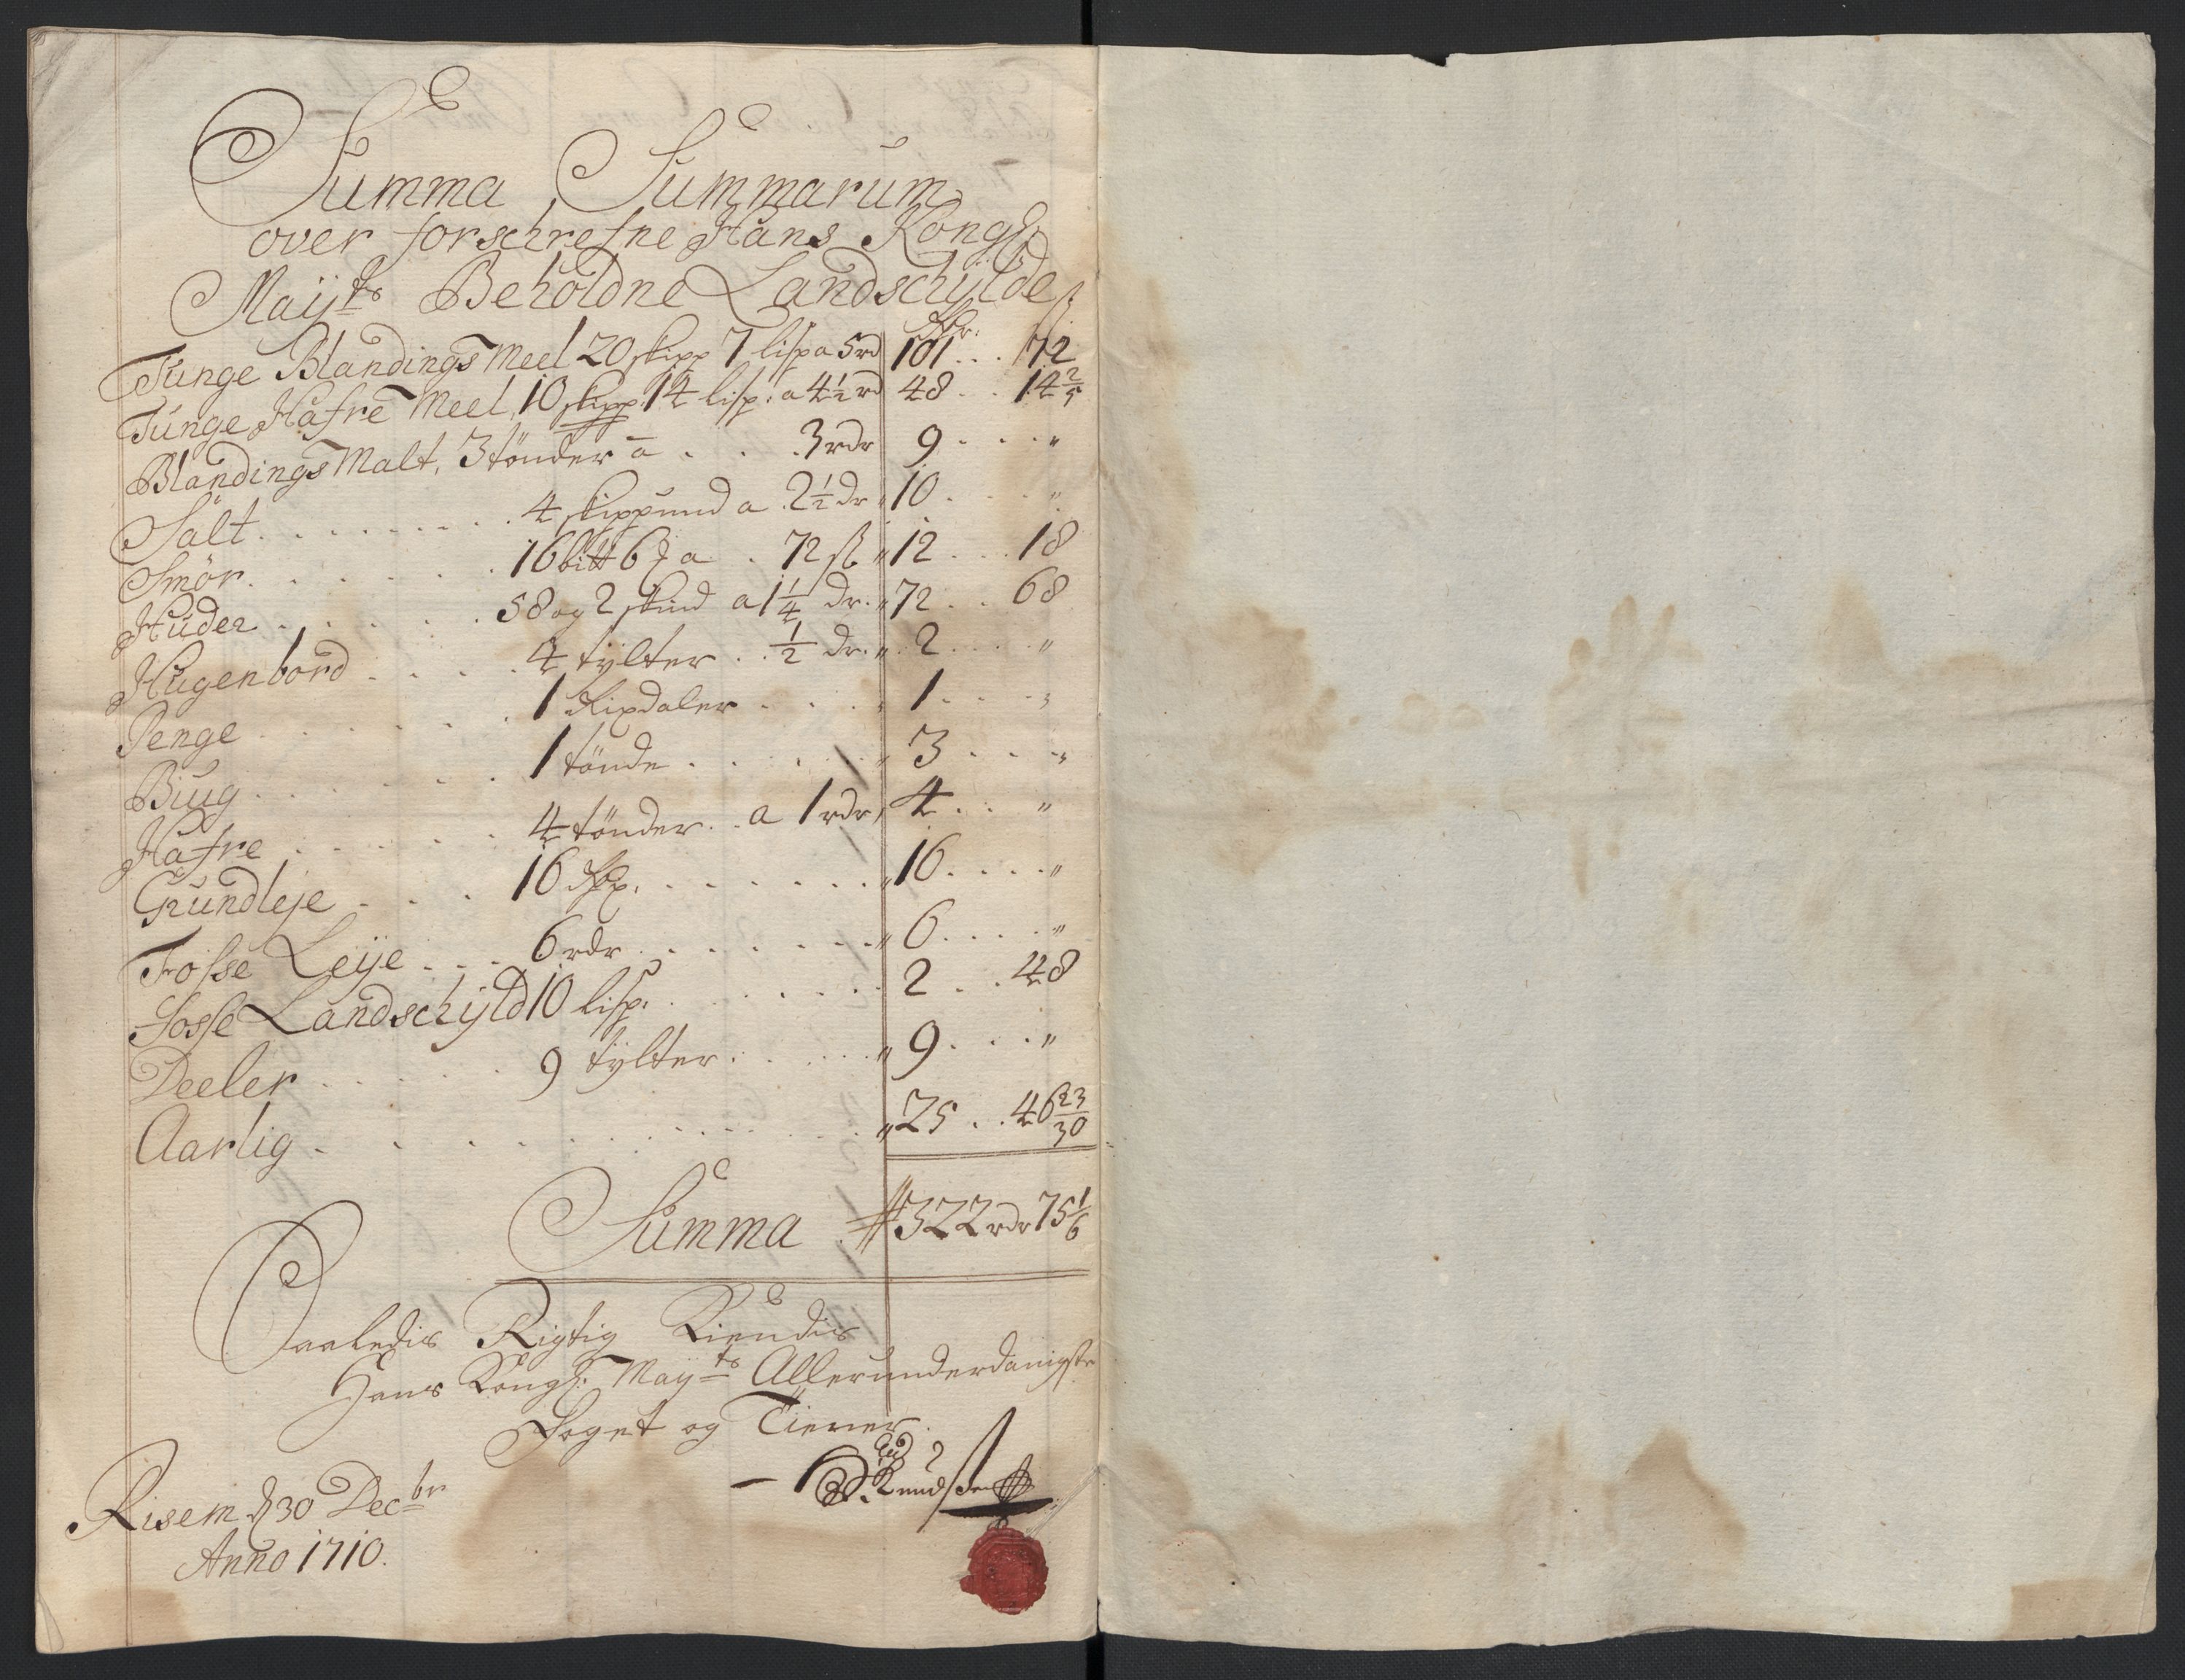 Summa Summarum
over forschrefne Hans Kongl:
Mayts Beholdne Landschylde
Rdr: ß
Tunge Blandings Meel 20 skipp 7 lisp a 5 rd 101 . . . 72
Tunge Hafre Meel, 10 skipp: 14 lisp: a 4½ rd 48 . . 14 2/5
Blandings Malt, 3 tönder a . . . 3 rdr 9 . . . "
Salt . . . . 4 skippund a 2½ dr " 10 . . . "
Smör . . . . 16 bitt 6 a . 72 ß " 12 . . . 18
Huder . . . . 58 og 2 skind a 1¼ dr. " 72 . . 68
Hugenbord . . . . 4 tylter . . ½ dr. " 2 . . . "
Penge . . . . 1 Rixdaler . . . " 1 . . . "
Biug . . . . 1 tönde . . . . " 3 . . . "
Hafre . . . . 4 tönder . . a 1 rdr " 4 . . "
Grundleje . . . 16 . . . . " 16 . . . "
Fosse Leije . . . 6 rdr . . . . " 6 . . . "
Fosse Landschyld 10 lisp: . . . . 2 . . 48
Deeler . . . . 9 tylter . . . . " 9 . . . "
Aarlig . . . . " 25 . . 46 23/30
Summa 322 rdr 75 1/6
Saaledis Rigtig Kiendis
Hans Kongl: Mayts Allerunderdanigste
Foget og Tiener
Knudsen
Risem d 30 Decbr
Anno 1710.